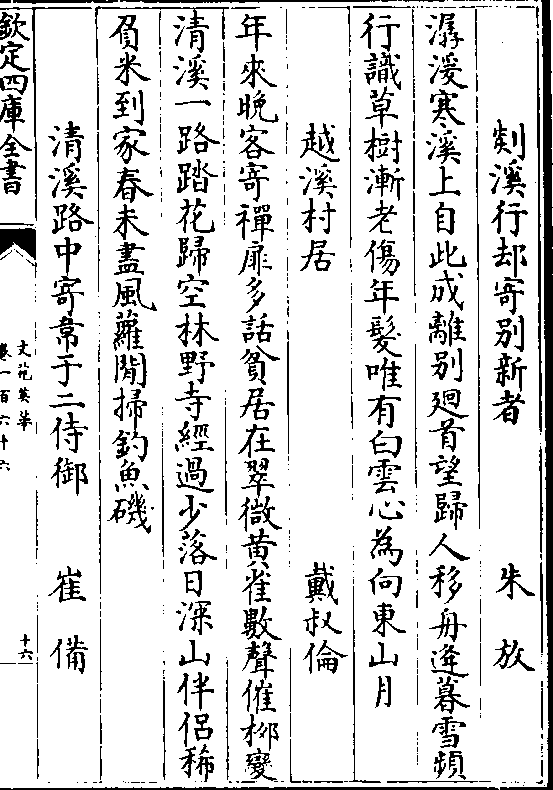 剡溪行却寄别新者 朱放
潺湲寒溪上自此成離别廻首望歸人移舟逢暮雪頻
行識草樹漸老傷年髮唯有白雲心為向東山月
越溪村居 戴叔倫
年來晚客寄禪扉多話貧居在翠微黄雀數聲催柳變
清溪一路踏花歸空林野寺經過少落日深山伴侣稀
負米到家春未盡風蘿閒掃釣魚磯
清溪路中寄韋于二侍御 崔備
欽定四庫全書
文苑英華
卷一百六十六
十六